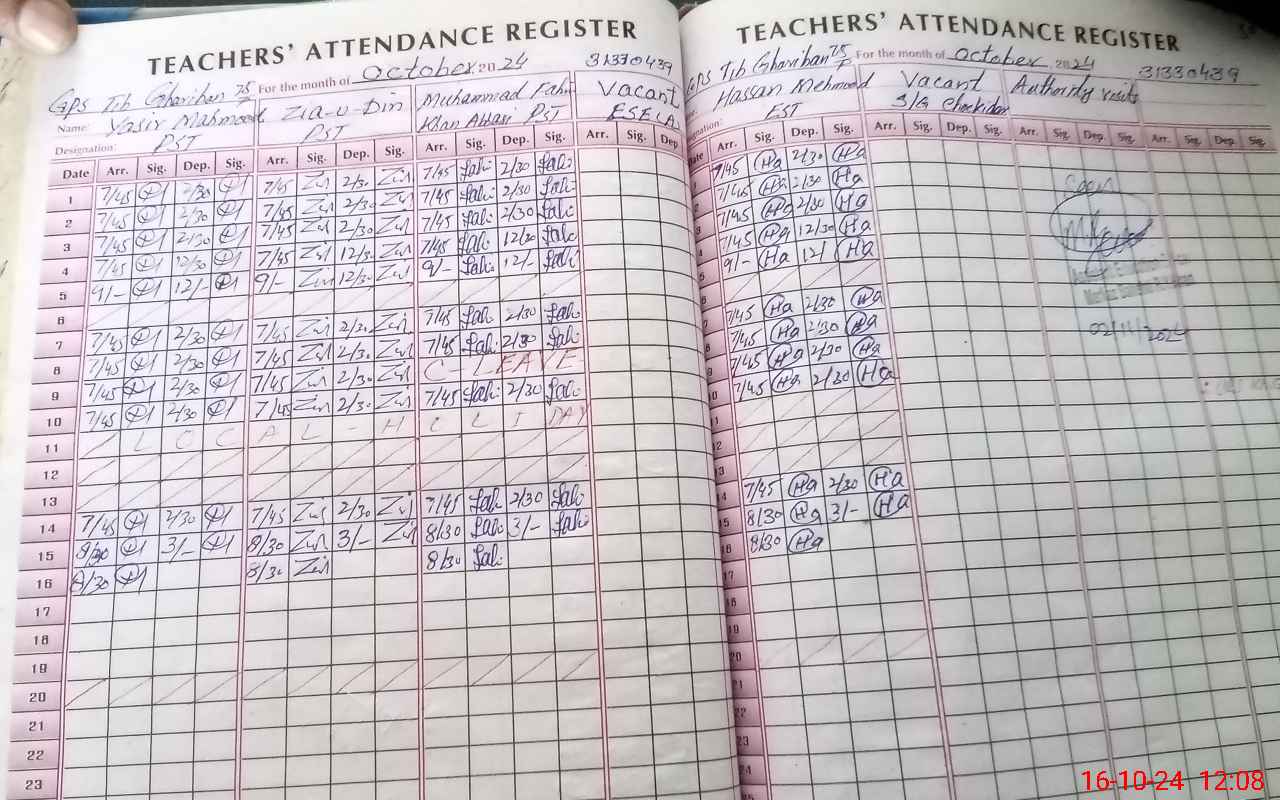 TEACHERS' ATTENDANCE REGISTER
GPS Tib Gharihan 75/F For the month of October 2024 31330439
Name: Yasir Mahmood Zia-u-Din Muhammad Fahi Khan Abbasi PST Vacant
Designation: PST PST ESE(A)
Date Arr. Sig. Dep. Sig. Arr. Sig. Dep. Sig. Arr. Sig. Dep. Sig. Arr. Sig. Dep
1 7/45 2/30 7/45 Zia 2/30 Zia 7/45 Fahi 2/30 Fahi
2 7/45 2/30 7/45 Zia 2/30 Zia 7/45 Fahi 2/30 Fahi
3 7/45 2/30 7/45 Zia 2/30 Zia 7/45 Fahi 2/30 Fahi
4 7/45 12/30 7/45 Zia 12/30 Zia 7/45 Fahi 12/30 Fahi
5 9/- 12/- 9/- Zia 12/30 Zia 9/- Fahi 12/- Fahi
6
7 7/45 2/30 7/45 Zia 2/30 Zia 7/45 Fahi 2/30 Fahi
8 7/45 2/30 7/45 Zia 2/30 Zia 7/45 Fahi 2/30 Fahi
9 7/45 2/30 7/45 Zia 2/30 Zia C-LEAVE
10 7/45 2/30 7/45 Zia 2/30 Zia 7/45 Fahi 2/30 Fahi
11 LOCAL-HOLIDAY
12
13
14 7/45 2/30 7/45 Zia 2/30 Zia 7/45 Fahi 2/30 Fahi
15 8/30 3/- 8/30 Zia 3/- Zia 8/30 Fahi 3/- Fahi
16 8/30 8/30 Zia 8/30 Fahi
17
18
19
20
21
22
23
TEACHERS' ATTENDANCE REGISTER
GPS Tib Gharihan 75/F For the month of October 2024 31330439
Hassan Mehmood Vacant Authority visits
EST S/G Chockidar
Arr. Sig. Dep. Sig. Arr. Sig. Dep. Sig. Arr. Sig. Dep. Sig. Arr. Sig. Dep. Sig.
7/45 Ha 2/30 Ha
7/45 Ha 2/30 Ha
7/45 Ha 2/30 Ha
7/45 Ha 12/30 Ha
9/- Ha 12/ Ha
7/45 Ha 2/30 Ha
7/45 Ha 2/30 Ha
7/45 Ha 2/30 Ha
7/45 Ha 2/30 Ha
7/45 Ha 2/30 Ha
8/30 Ha 3/- Ha
8/30 Ha
Seen
02/11/202
16-10-24 12:08